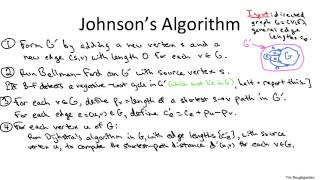 Johnson's Algorithm
Input: directed
graph G=(V,E),
general edge
lengths cₑ.
① Form G' by adding a new vertex s and a
new edge (s,v) with length 0 for each v∈G.
G'
G
② Run Bellman-Ford on G' with source vertex s.
[If B-F detects a negative-cost cycle in G' (which must lie in G), halt + report this.]
③ For each v∈G, define pᵥ = length of a shortest s→v path in G'.
For each edge e=(u,v)∈G, define cₑ' = cₑ + pᵤ - pᵥ.
④ For each vertex u of G:
Run Dijkstra's algorithm in G, with edge lengths {cₑ'}, with source
vertex u, to compute the shortest-path distance d'(u,v) for each v∈G.
Tim Roughgarden